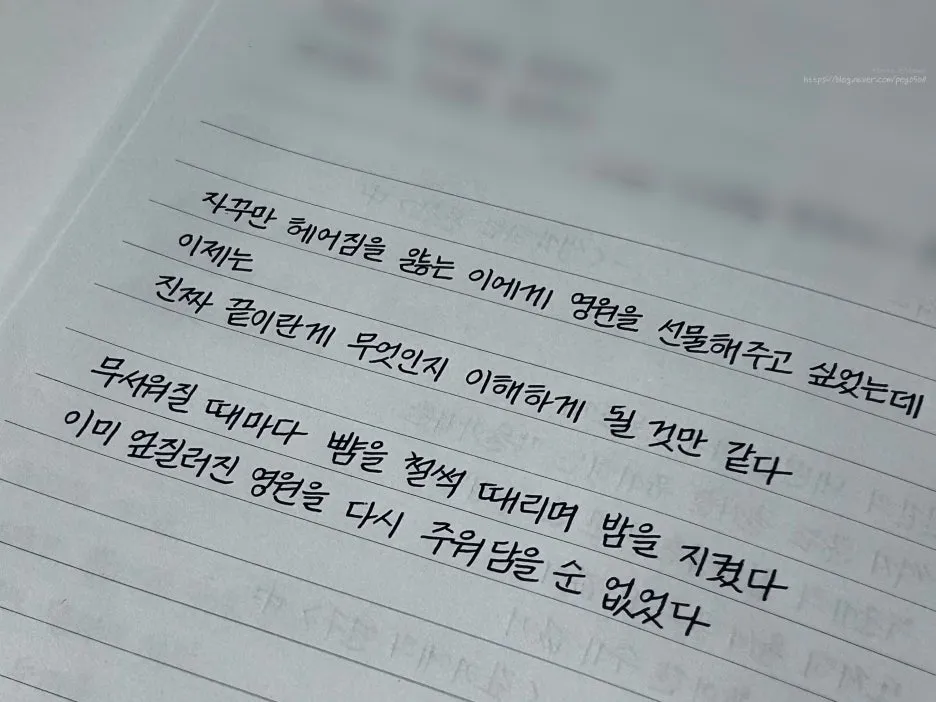 자꾸만 헤어짐을 앓는 이에게 영원을 선물해주고 싶었는데
이제는
진짜 끝이란게 무엇인지 이해하게 될 것만 같다
무서워질 때마다 뺨을 철썩 때리며 밤을 지켰다
이미 엎질러진 영원을 다시 주워담을 순 없었다